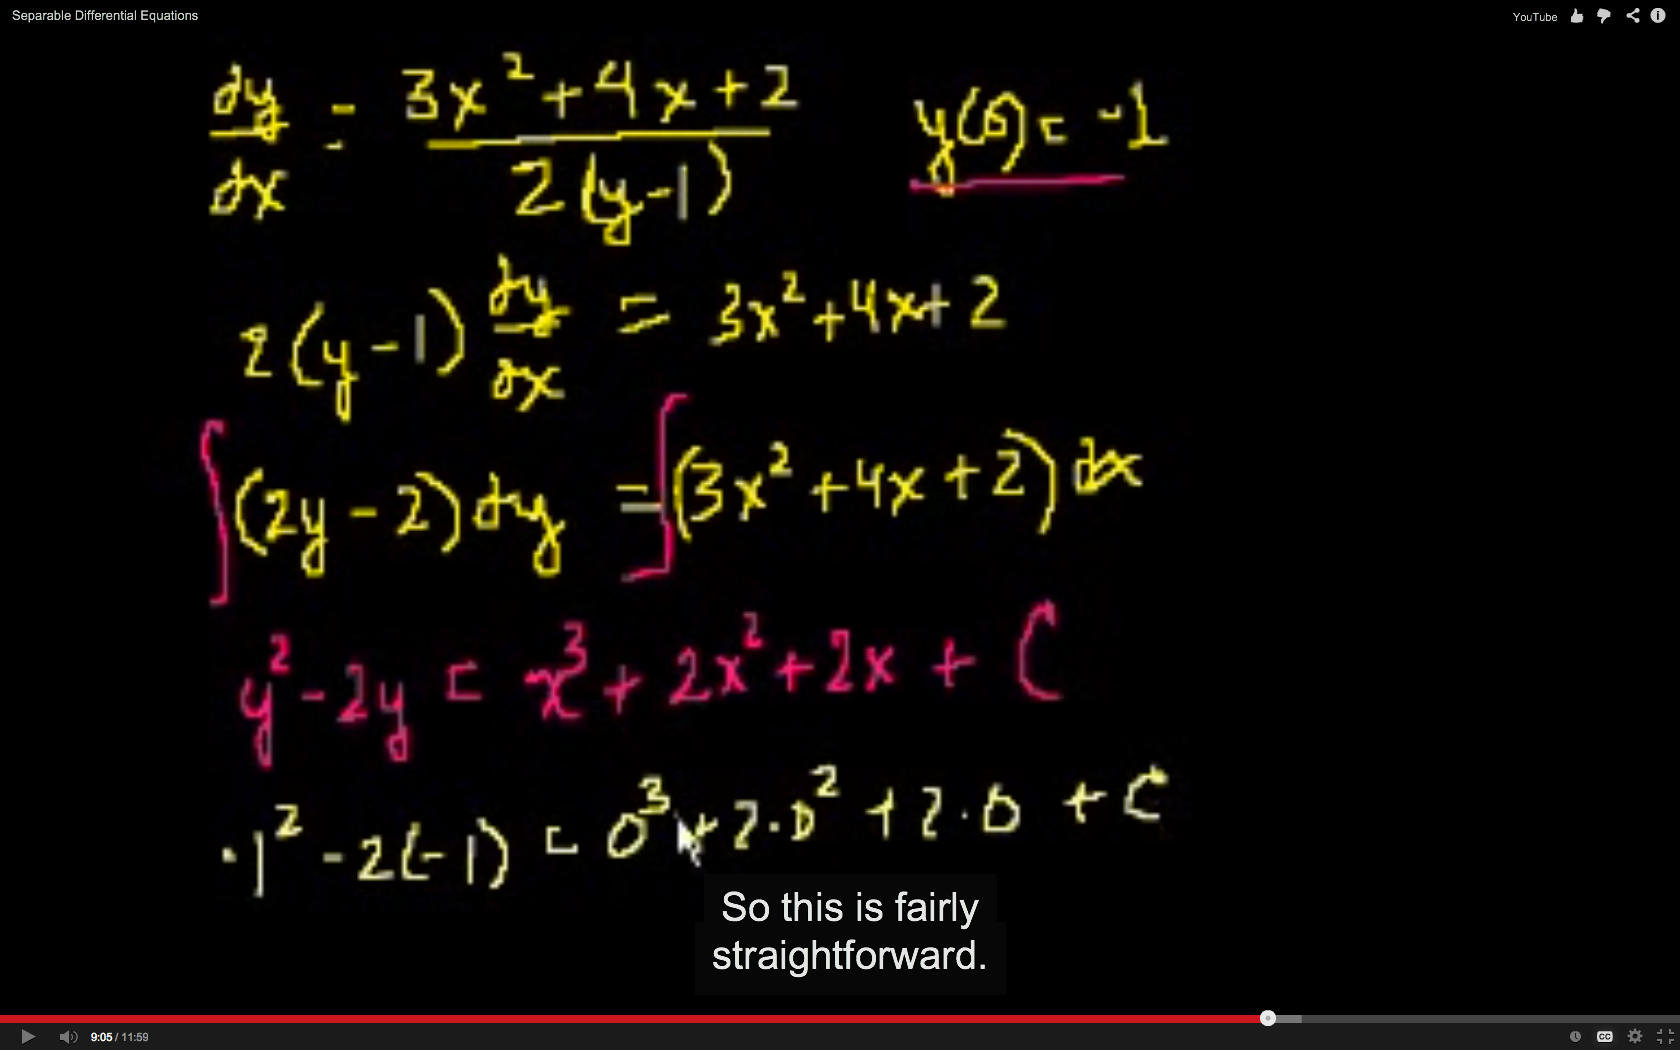 Separable Differential Equations
YouTube
dy/dx = (3x² + 4x + 2)/(2(y - 1))    y(0) = -1
2(y - 1) dy/dx = 3x² + 4x + 2
∫(2y - 2) dy = ∫(3x² + 4x + 2) dx
y² - 2y = x³ + 2x² + 2x + C
-1² - 2(-1) = 0³ + 2·0² + 2·0 + C
So this is fairly
straightforward.
9:05 / 11:59
CC